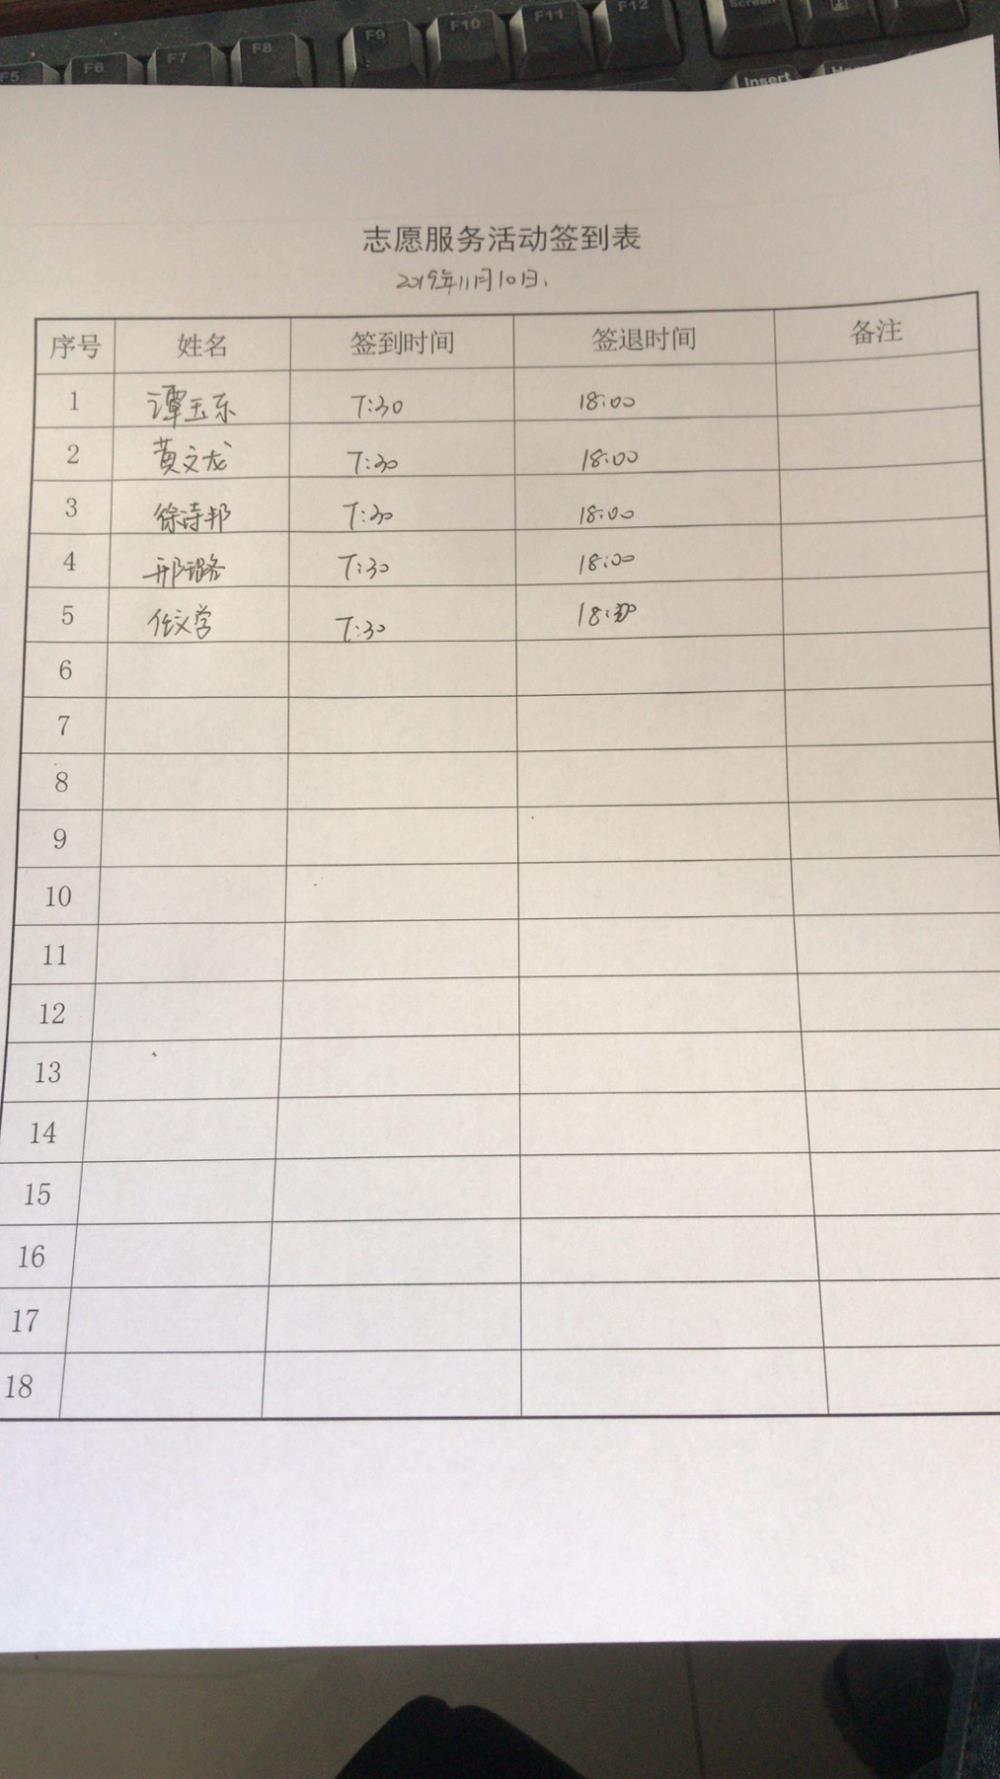 F5 F6 F7 F8 F9 F10 F11 F12
Insert
志愿服务活动签到表
2019年11月10日.
序号 姓名 签到时间 签退时间 备注
1 谭玉东 7:30 18:00
2 黄文龙 7:30 18:00
3 徐诗邦 7:30 18:00
4 邢璐 7:30 18:00
5 任文学 7:30
6
7
8
9
10
11
12
13
14
15
16
17
18